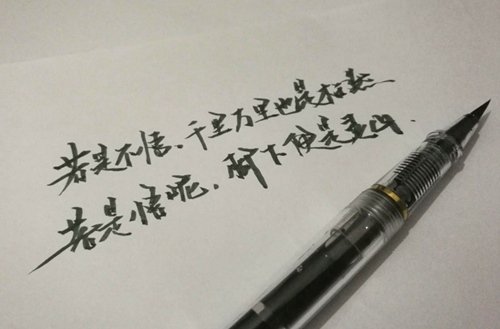 若是不悟、千里万里也是枉然.
若是悟呢，脚下便是灵山.